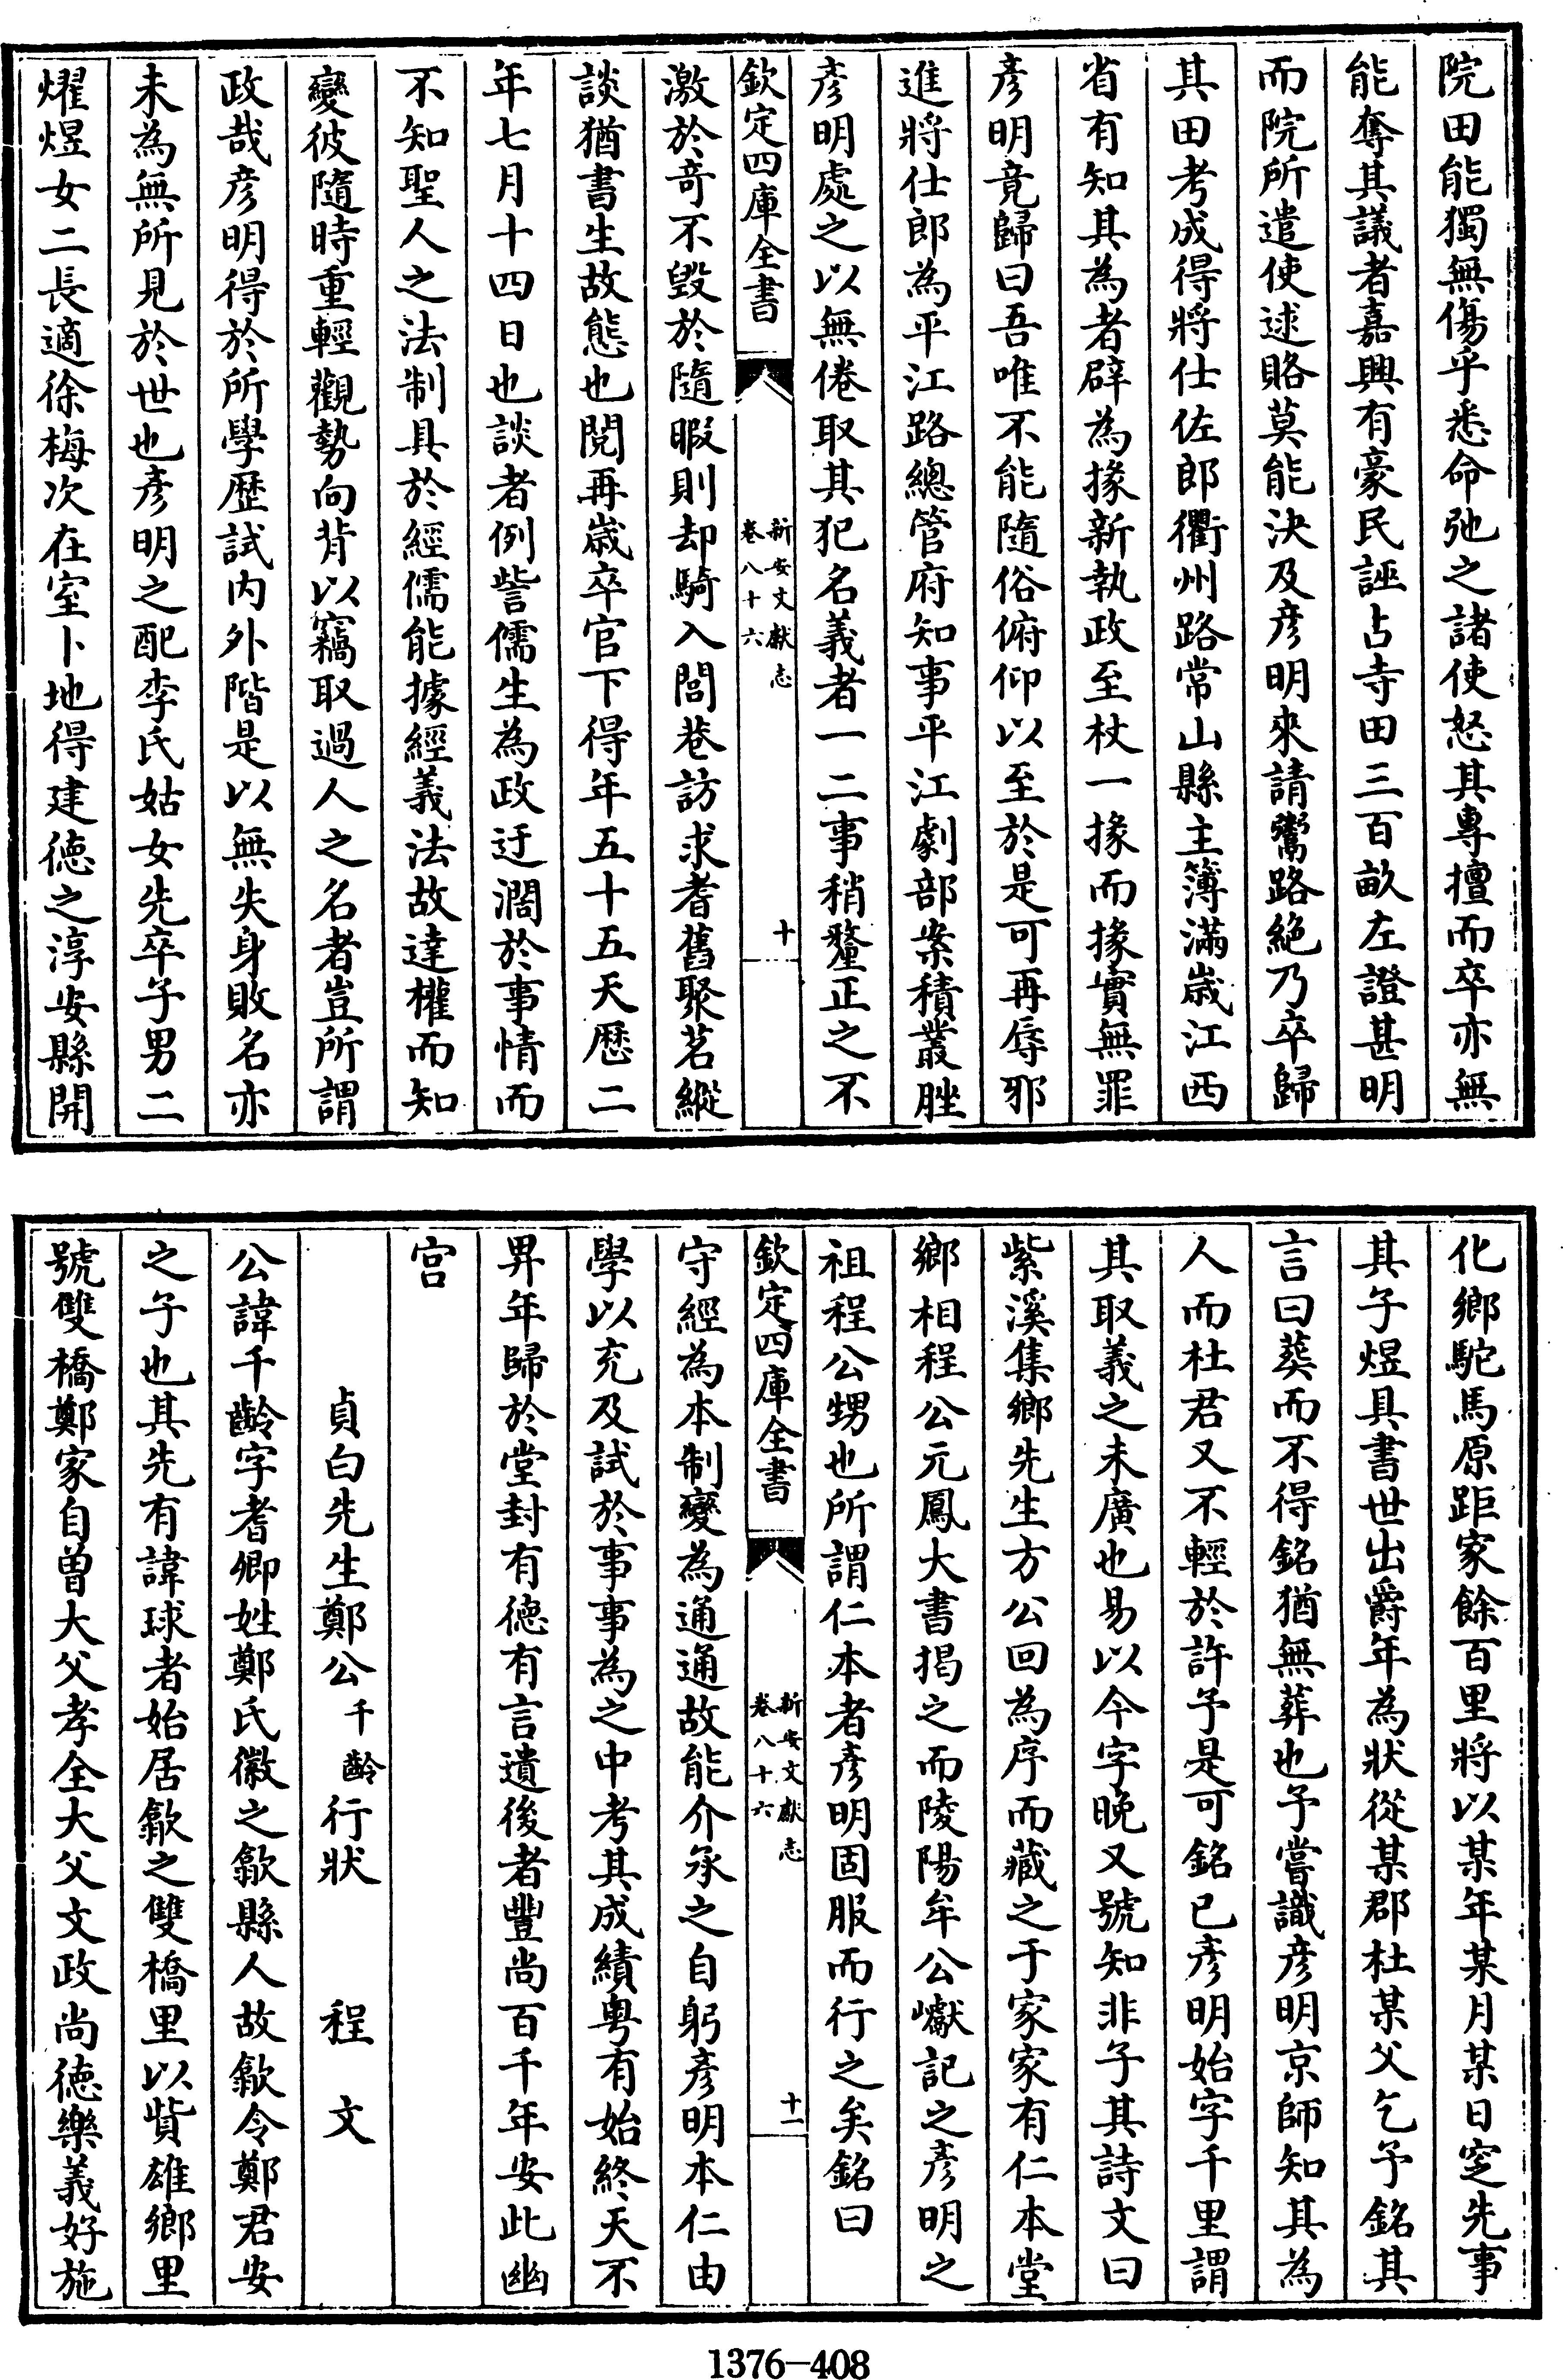 院田能獨無傷乎悉命弛之諸使怒其專擅而卒亦無
能奪其議者嘉興有豪民誣占寺田三百畝左證甚明
而院所遣使逑賂莫能決及彦明來請鬻路絶乃卒歸
其田考成得將仕佐郎衢州路常山縣主簿滿嵗江西
省有知其為者辟為掾新執政至杖一掾而掾實無罪
彦明竟歸曰吾唯不能隨俗俯仰以至於是可再辱邪
進將仕郎為平江路總管府知事平江劇部案積叢脞
彦明處之以無倦取其犯名義者一二事稍釐正之不
欽定四庫全書
新安文獻志
卷八十六
十
激於竒不毁於隨暇則却騎入閭巷訪求耆舊聚茗縱
談猶書生故態也閲再嵗卒官下得年五十五天厯二
年七月十四日也談者例訾儒生為政迂濶於事情而
不知聖人之法制具於經儒能據經義法故達權而知
變彼隨時重輕觀勢向背以竊取過人之名者豈所謂
政哉彦明得於所學歴試内外階是以無失身敗名亦
未為無所見於世也彦明之配李氏姑女先卒子男二
燿煜女二長適徐梅次在室卜地得建徳之淳安縣開
化鄉駝馬原距家餘百里將以某年某月某日窆先事
其子煜具書世出爵年為狀從某郡杜某父乞予銘其
言曰葬而不得銘猶無葬也予嘗識彦明京師知其為
人而杜君又不輕於許予是可銘已彦明始字千里謂
其取義之未廣也易以今字晚又號知非子其詩文曰
紫溪集鄉先生方公回為序而藏之于家家有仁本堂
鄉相程公元鳳大書揭之而陵陽牟公巘記之彦明之
祖程公甥也所謂仁本者彦明固服而行之矣銘曰
欽定四庫全書
新安文獻志
卷八十六
十一
守經為本制變為通通故能介承之自躬彦明本仁由
學以充及試於事事為之中考其成績粤有始終天不
畀年歸於堂封有徳有言遺後者豐尚百千年安此幽
宫
貞白先生鄭公千齡行狀　程文
公諱千齡字耆卿姓鄭氏徽之歙縣人故歙令鄭君安
之子也其先有諱球者始居歙之雙橋里以貲雄鄉里
號雙橋鄭家自曽大父孝全大父文政尚徳樂義好施
1376-408